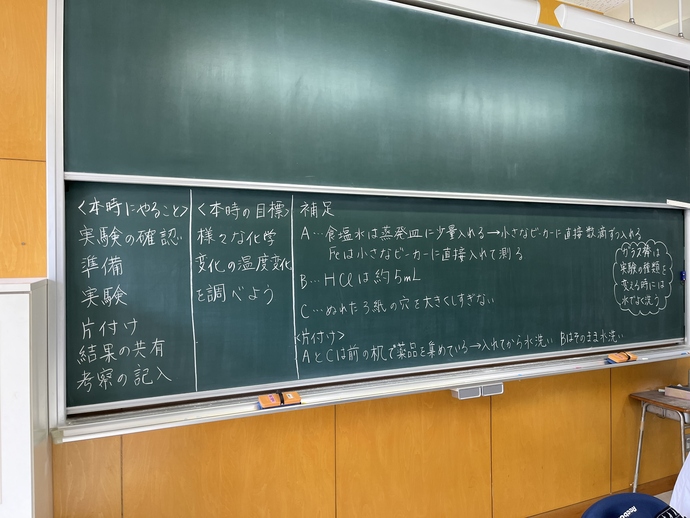 <本時にやること>
実験の確認
準備
実験
片付け
結果の共有
考察の記入
<本時の目標>
様々な化学
変化の温度変化
を調べよう
補足
A…食塩水は蒸発皿に少量入れる→小さなビーカーに直接数滴ずつ入れる
Feは小さなビーカーに直接入れて測る
B…HClは約5mL
C…ぬれたろ紙の穴を大きくしすぎない
<片付け>
AとCは前の机で薬品を集めている→入れてから水洗い Bはそのまま水洗い
ガラス棒は
実験の種類を
変える時には
水でよく洗う
Reebok